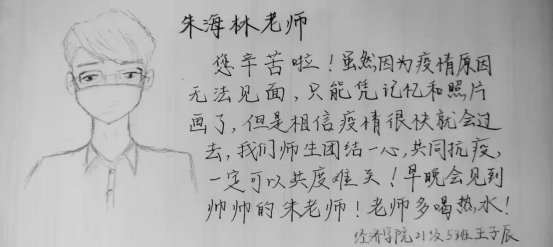 朱海林老师
您辛苦啦！虽然因为疫情原因
无法见面，只能凭记忆和照片
画了，但是相信疫情很快就会过
去，我们师生团结一心，共同抗疫，
一定可以共度难关！早晚会见到
帅帅的朱老师！老师多喝热水！
经济学院21级5班王子辰